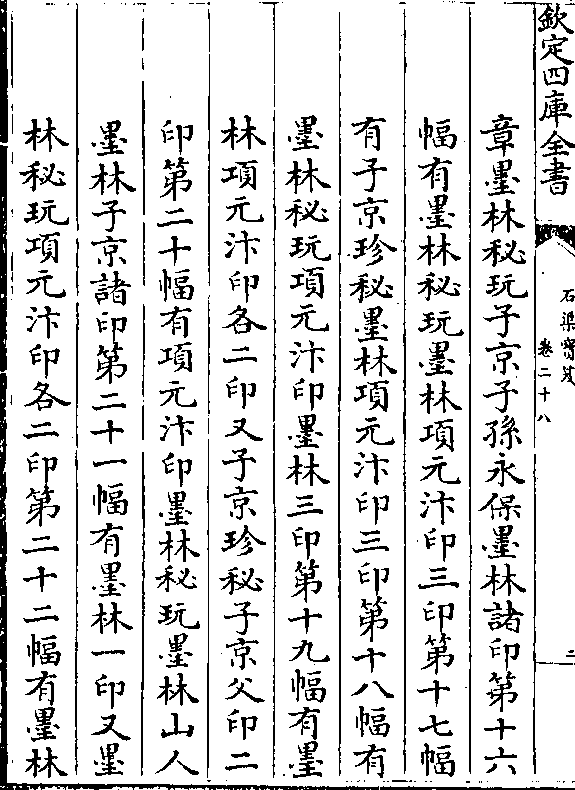 欽定四庫全書
石渠寳笈
卷二十八
二
章墨林秘玩子京子孫永保墨林諸印第十六
幅有墨林秘玩墨林項元汴印三印第十七幅
有子京珍秘墨林項元汴印三印第十八幅有
墨林秘玩項元汴印墨林三印第十九幅有墨
林項元汴印各二印又子京珍秘子京父印二
印第二十幅有項元汴印墨林秘玩墨林山人
墨林子京諸印第二十一幅有墨林一印又墨
林秘玩項元汴印各二印第二十二幅有墨林